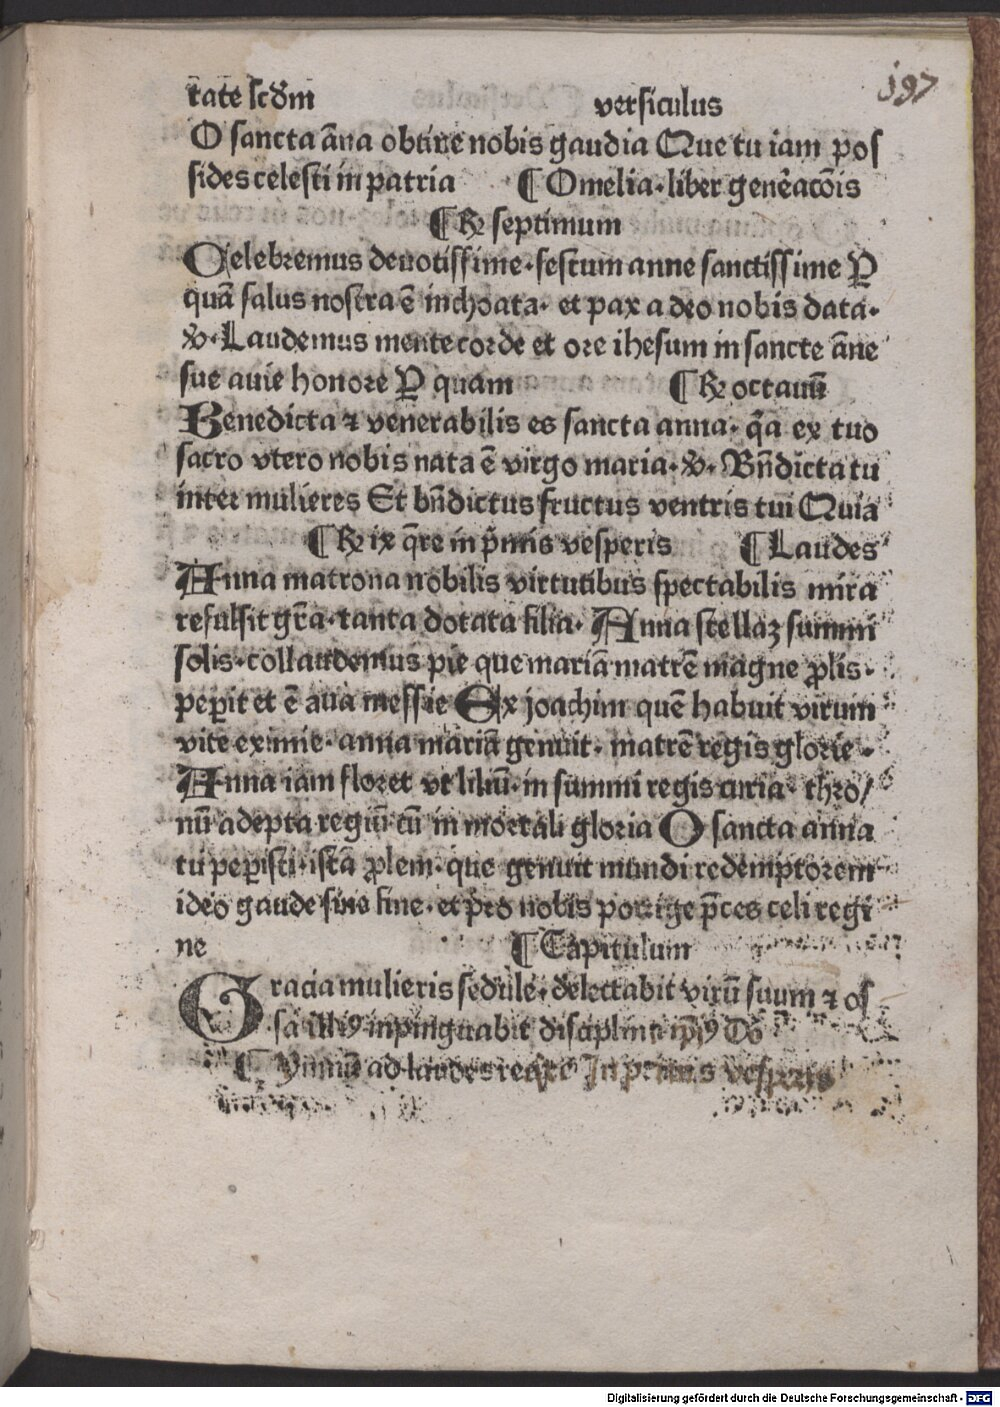 197
tate scd̄m versiculus
O sancta ãna obtine nobis gaudia Que tu iam pos
sides celesti in patria ¶ Omelia · liber genẽacõis
¶ ℞ septimum
Celebremus deuotissime · festum anne sanctissime ꝑ
quã salus nostra ẽ inchoata · et pax a deo nobis data ·
℣ · Laudemus mente corde et ore ihesum in sancte ãne
sue auie honore ꝑ quam ¶ ℞ octauũ
Benedicta ⁊ venerabilis es sancta anna · q̃a ex tuo
sacro vtero nobis nata ẽ virgo maria · ℣ · Bñdicta tu
inter mulieres Et bñdictus fructus ventris tui Quia
¶ ℞ ix q̃re in p̃mis vesperis ¶ Laudes
Anna matrona nobilis virtutibus spectabilis mira
refulsit gr̃a · tanta dotata filia · Anna stellaꝫ summi
solis · collaudemus pie que mariã matrẽ magne ꝓlis ·
peꝑit et ẽ aua messie Ex joachim quẽ habuit virum
vite eximie · anna mariã genuit · matrẽ regis glorie ·
Anna iam floret vt liliũ · in summi regis curia · thro/
nũ adepta regiũ · cũ in mortali gloria O sancta anna
tu peꝑisti · istã ꝓlem · que genuit mundi redemptorem
ideo gaude sine fine · et pro nobis porrige p̃ces celi regi
ne ¶ Capitulum
Gracia mulieris sedule · delectabit virũ suum ⁊ os
sa illiꝰ inpinguabit disciplina ip̃iꝰ Dõ
¶ Ymnũ ad laudes In primis vesperis
Digitalisierung gefördert durch die Deutsche Forschungsgemeinschaft - DFG